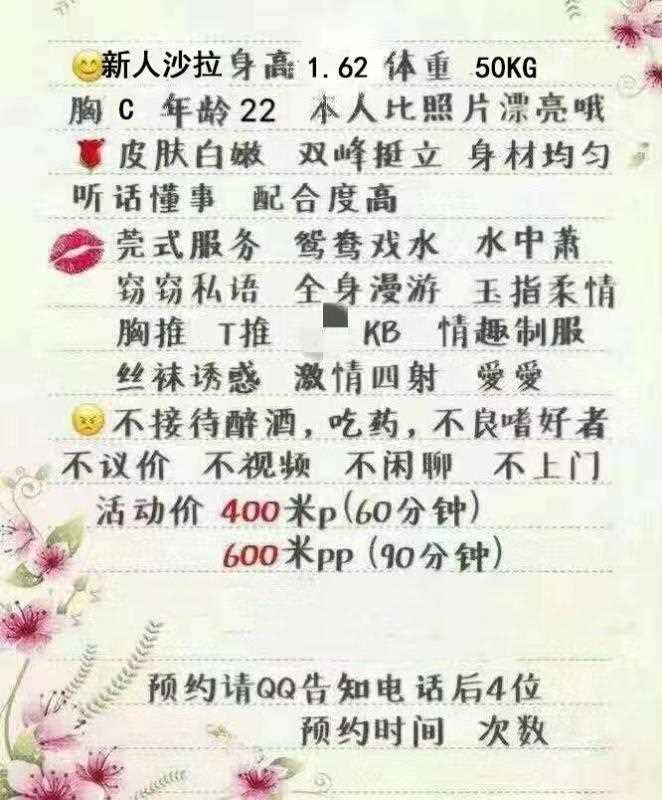 新人沙拉身高1.62 体重 50KG
胸 C 年龄22 本人比照片漂亮哦
皮肤白嫩 双峰挺立 身材均匀
听话懂事 配合度高
莞式服务 鸳鸯戏水 水中萧
窃窃私语 全身漫游 玉指柔情
胸推 T推 KB 情趣制服
丝袜诱惑 激情四射 愛愛
不接待醉酒,吃药,不良嗜好者
不议价 不视频 不闲聊 不上门
活动价 400米p(60分钟)
600米pp(90分钟)
预约请QQ告知电话后4位
预约时间 次数